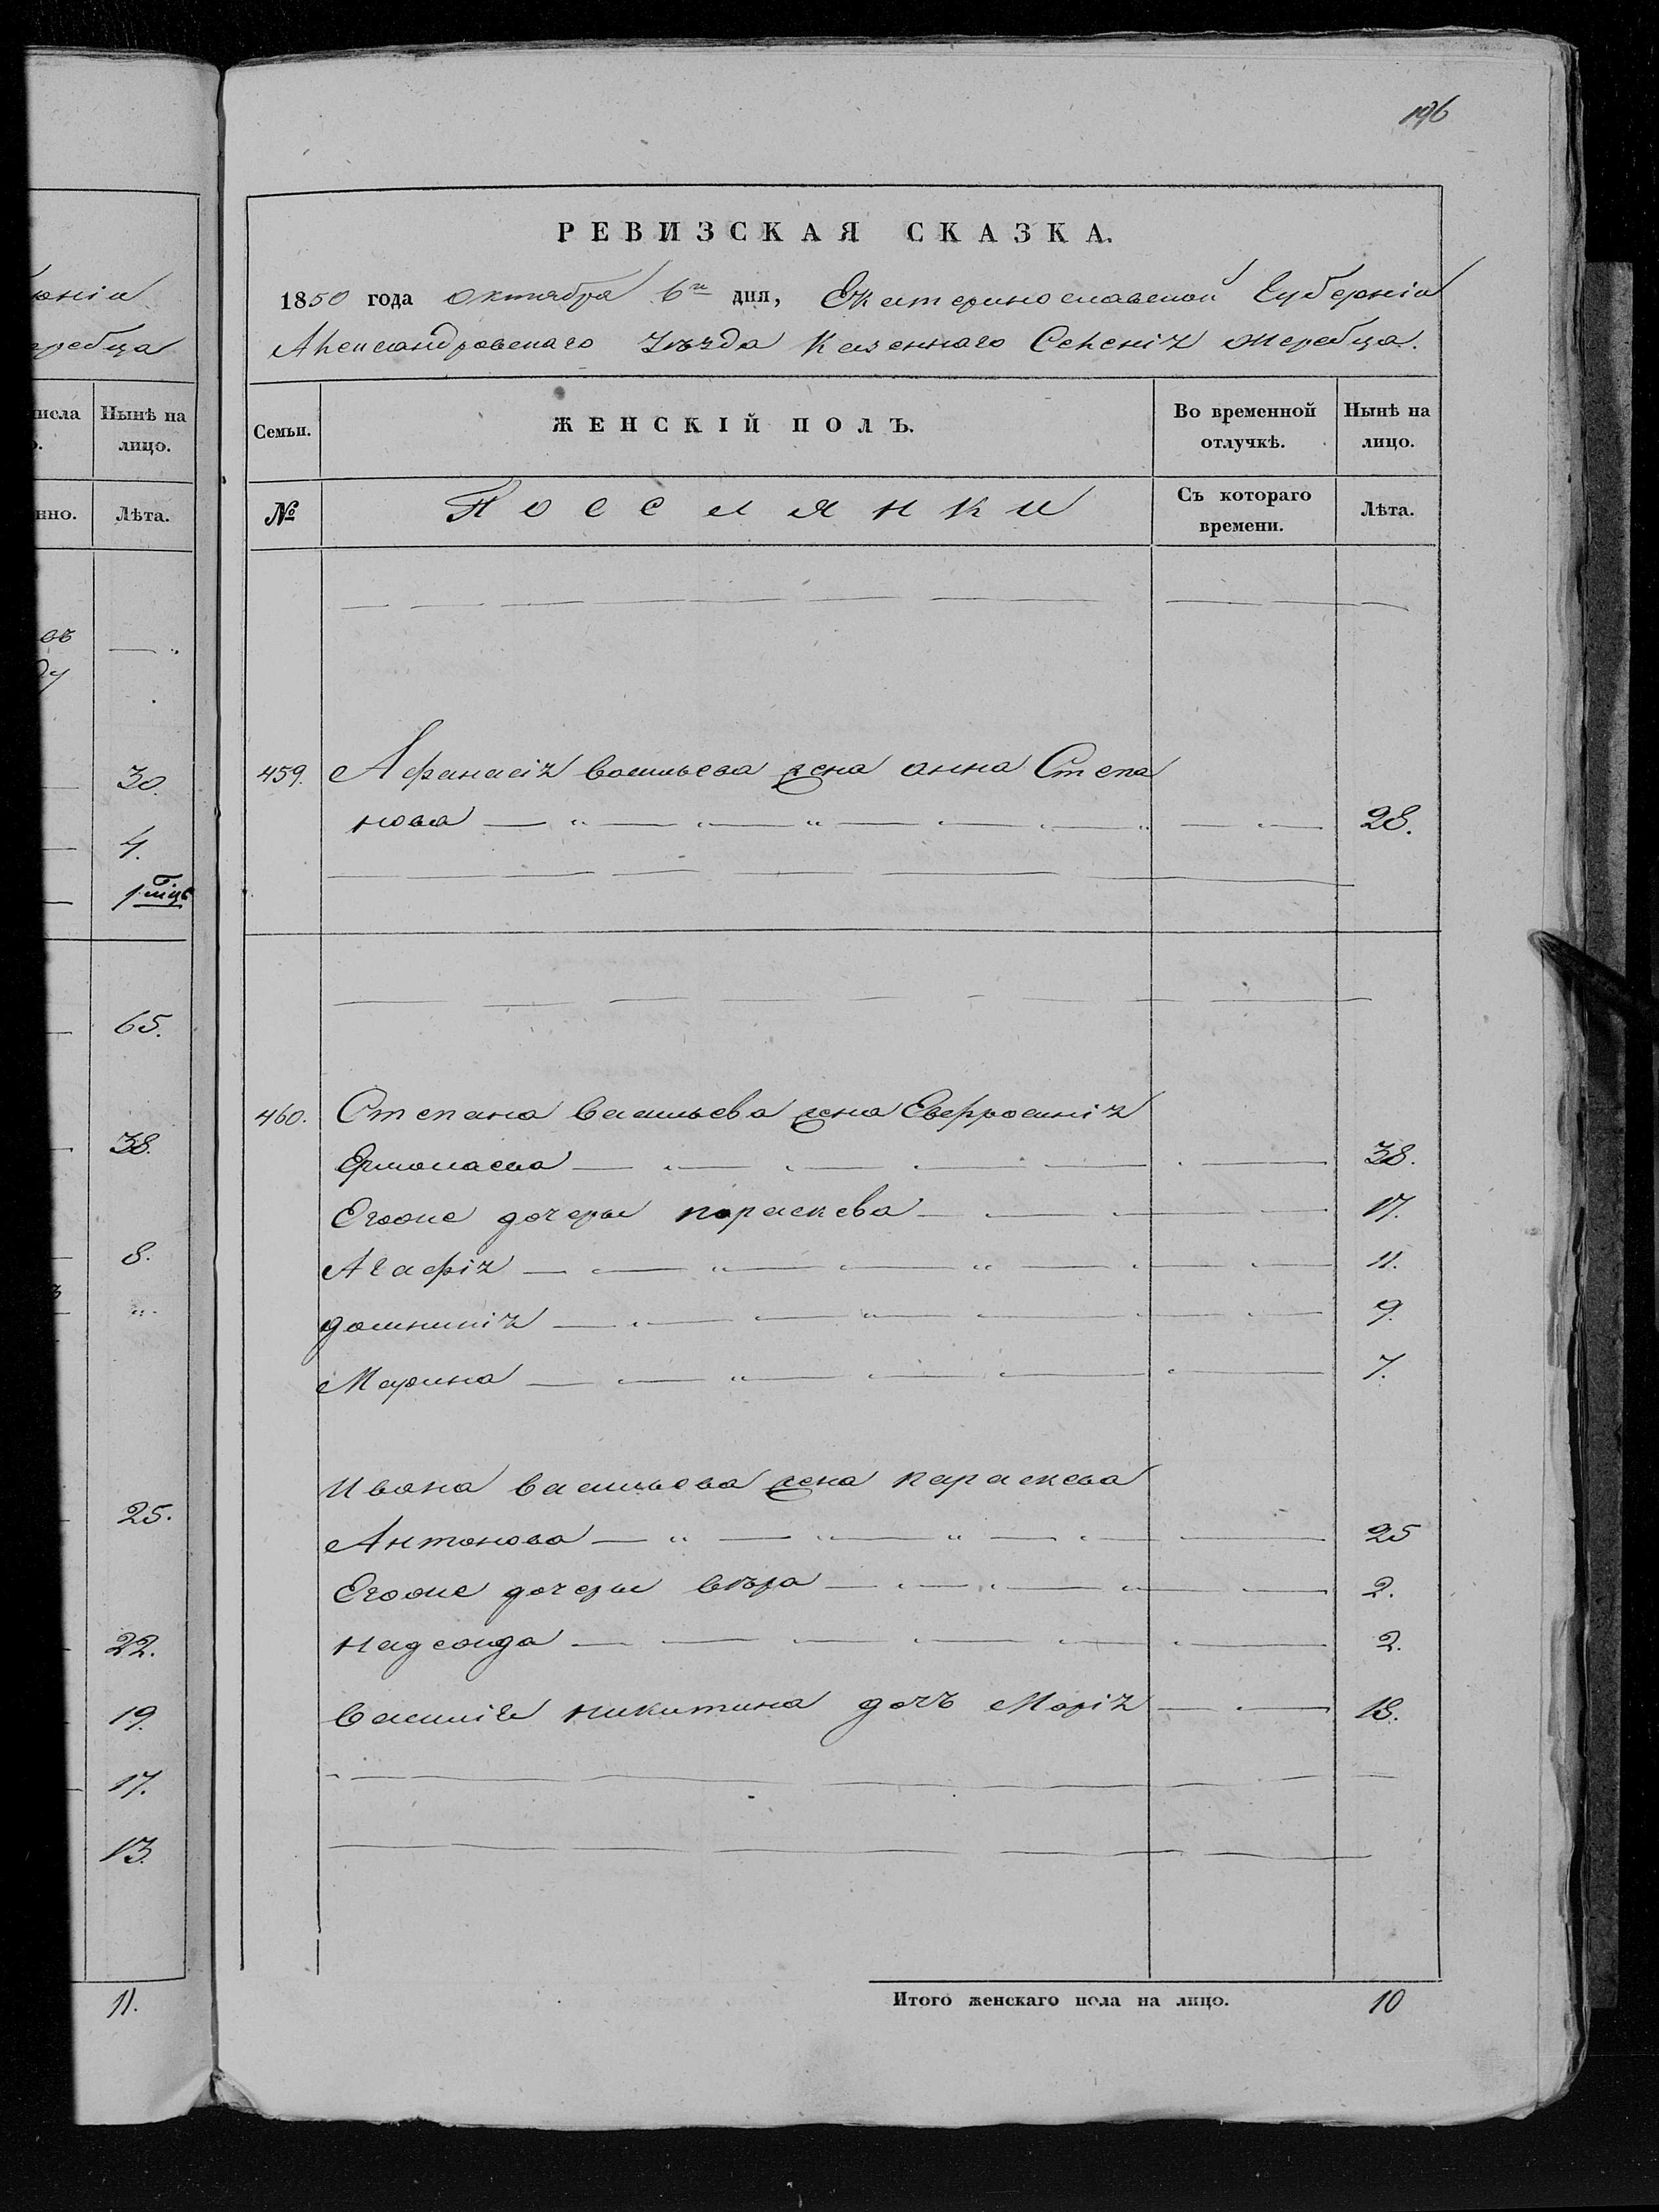 196
РЕВИЗСКАЯ СКАЗКА.
1850 года октября 6го дня, Екатеринославской Губерніи
Александровскаго Уѣзда Казеннаго Селенія жеребца.
Семьи.
ЖЕНСКІЙ ПОЛЪ.
Во временной отлучкѣ.
Нынѣ на лицо.
№
Поселянки
Съ котораго времени.
Лѣта.
459. Афанасія васильева жена анна Степа
нова 28.
460. Степана васильева жена Евфросинія
Ермолаева 38.
Егоже дочери параскева 17.
Агафія 11.
домникія 9.
Марина 7.
Ивана васильева жена параскева
Антонова 25
Егоже дочери вѣра 2.
надежда 2.
василія никитина дочь Марія 18.
Итого женскаго пола на лицо. 10
ребца
Нынѣ на
лицо.
Лѣта.
30.
4.
65.
38.
8.
25.
22.
19.
17.
13.
11.